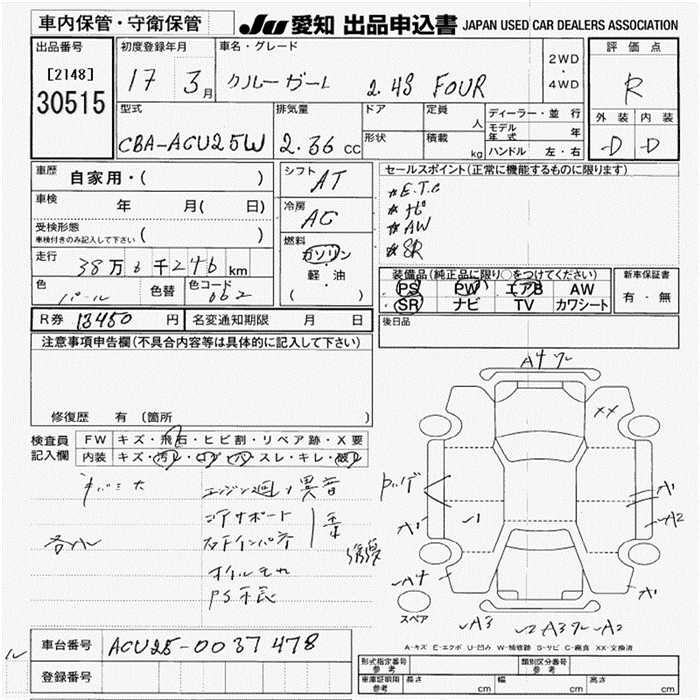 車内保管・守衛保管
JU 愛知 出品申込書 JAPAN USED CAR DEALERS ASSOCIATION
出品番号 初度登録年月 車名・グレード 2WD・4WD 評価点
[2148]
30515
17 3月 クルーガーL 2.4S FOUR R
型式 排気量 ドア 定員 人 ディーラー・並行 外装 内装
モデル年式 年
CBA-ACU25W 2.36 cc 形状 積載 kg ハンドル 左・右 D D
車歴 自家用・( ) シフト AT セールスポイント(正常に機能するものに限ります)
車検 年 月( 日) 冷房 AC
☆E.T.C
☆ナビ
☆AW
☆SR
受検形態 ( )
車検付きのみ記入して下さい
燃料 ガソリン
軽・油
( )
走行 38万6千246km
装備品(純正品に限り○をつけてください) 新車保証書
PS PW エアB AW 有・無
SR ナビ TV カワシート
色 パール 色替 色コード 062
R券 13450円 名変通知期限 月 日 後日品
注意事項申告欄(不具合内容等は具体的に記入して下さい)
修復歴 有(箇所
検査員 FW キズ・飛石・ヒビ割・リペア跡・X要
記入欄 内装 キズ・汚レ・コゲ・穴・スレ・キレ・破レ
エンジン廻り異音
コアサポート
右下インパネ
オイルモレ
A4
XX
A1
A2
A1
A1
A4
A3
A2
スペア
A-キズ E-エクボ U-凹み W-補修跡 S-サビ C-腐食 XX-交換済
車台番号 ACU25-0037478
登録番号
型式指定番号 参考 類別区分番号 参考
車庫証明期限 参考 長さ cm 幅 cm 高さ cm